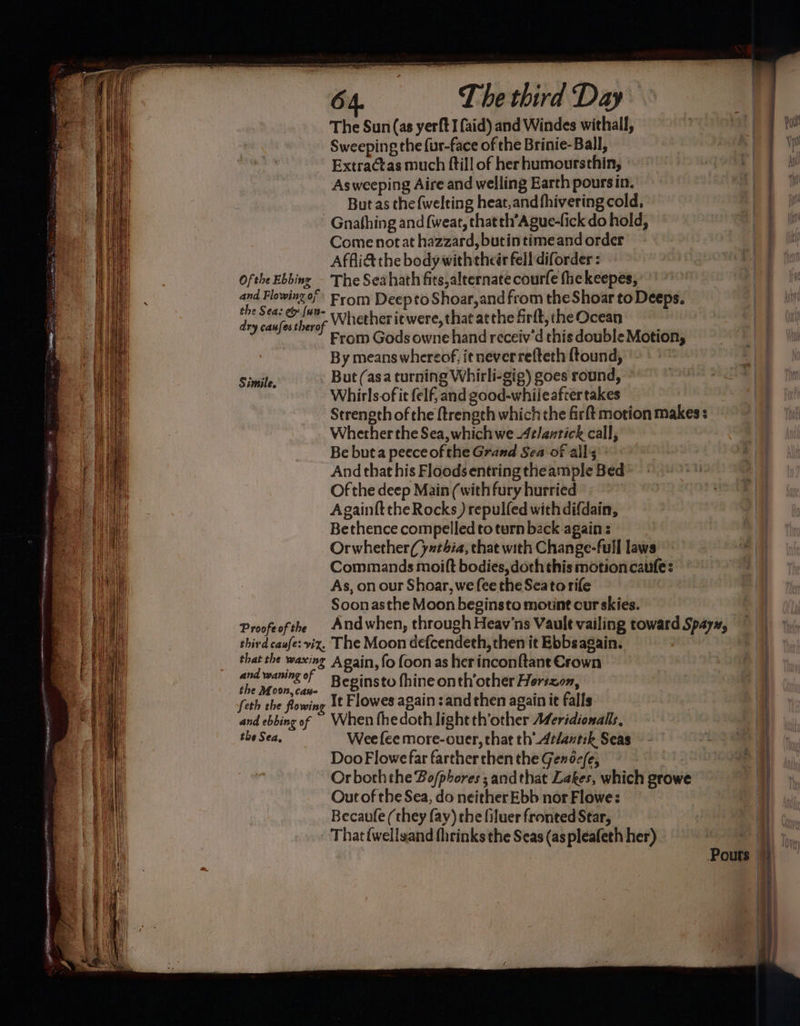 64. The third Day
The Sun (as yerſt I ſaid) and Windes withall,
Sweeping the ſur-face of the Brinie-Ball,
Extract as much ſtill of her humours thin,
As weeping Aire and welling Earth pours in.
But as the ſwelting heat, and ſhivering cold,
Gnaſhing and ſweat, that th'Ague-ſick do hold,
Come not at hazzard, but in time and order
Afflict the body with their fell diſorder:
Of the Ebbing The Sea hath fits, alternate courſe ſhe keepes,
and Flowing of From Deep to Shoar, and from the Shoar to Deeps.
the Sea: & ſun-
dry cauſes therof Whether it were, that at the firſt, the Ocean
From Gods owne hand receiv'd this double Motion,
By means whereof, it never reſteth ſtound,
Simile. But (as a turning Whirli-gig) goes round,
Whirls of it ſelf, and good-while after takes
Strength of the ſtrength which the firſt motion makes:
Whether the Sea, which we Atlantick call,
Be but a peece of the Grand Sea of all;
And that his Floods entring the ample Bed
Of the deep Main (with fury hurried
Againſt the Rocks) repulſed with diſdain,
Be thence compelled to turn back again:
Or whether Cynthia, that with Change-full laws
Commands moiſt bodies, doth this motion cauſe:
As, on our Shoar, we ſee the Sea to riſe
Soon as the Moon begins to mount our skies.
Proofe of the And when, through Heav'ns Vault vailing toward Spayn,
third cauſe: viz. The Moon deſcendeth, then it Ebbs again.
that the waxing Again, ſo ſoon as her inconſtant Crown
and waning of Begins to ſhine on th'other Horizon,
the Moon, cau-
ſeth the flowing It Flowes again: and then again it falls
and ebbing of When ſhe doth light th'other Meridionalls.
the Sea. Wee ſee more-over, that th'Atlantik Seas
Doo Flowe far farther then the Genöeſe,
Or both the Boſphores; and that Lakes, which growe
Out of the Sea, do neither Ebb nor Flowe:
Becauſe (they ſay) the ſiluer fronted Star,
That ſwells and ſhrinks the Seas (as pleaſeth her)
Pours